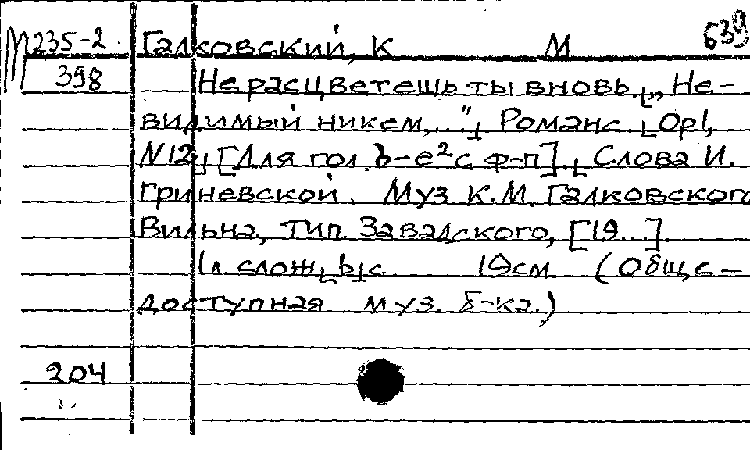 639
М 235-2 Галковский, К М
398 Не расцветешь ты вновь, „Не-
видимый никем,..." Романс Op1,
N12, [Для гол. b-e²с ф-п], Слова И.
Гриневской. Муз К.М. Галковского
Вильна, тип Завадского, [19...]
1л слож, b, с. 19см (Обще-
доступная муз. б-ка.)
204